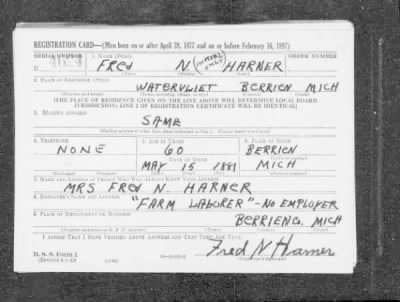 REGISTRATION CARD—(Men born on or after April 28, 1877 and on or before February 16, 1897)
SERIAL NUMBER 1. NAME (Print) ORDER NUMBER
U FRED N (INITIAL ONLY) HARNER
2. PLACE OF RESIDENCE (Print)
WATERVLIET BERRIEN MICH
[THE PLACE OF RESIDENCE GIVEN ON THE LINE ABOVE WILL DETERMINE LOCAL BOARD
JURISDICTION; LINE 2 OF REGISTRATION CERTIFICATE WILL BE IDENTICAL]
3. MAILING ADDRESS
SAME
4. TELEPHONE 5. AGE IN YEARS 6. PLACE OF BIRTH
NONE 60 BERRIEN
DATE OF BIRTH
MAY 15 1881 MICH
7. NAME AND ADDRESS OF PERSON WHO WILL ALWAYS KNOW YOUR ADDRESS
MRS FRED N. HARNER
8. EMPLOYER'S NAME AND ADDRESS
"FARM LABORER" - NO EMPLOYER
9. PLACE OF EMPLOYMENT OR BUSINESS
BERRIEN CO. MICH
I AFFIRM THAT I HAVE VERIFIED ABOVE ANSWERS AND THAT THEY ARE TRUE.
D. S. S. Form 1
Fred N Harner